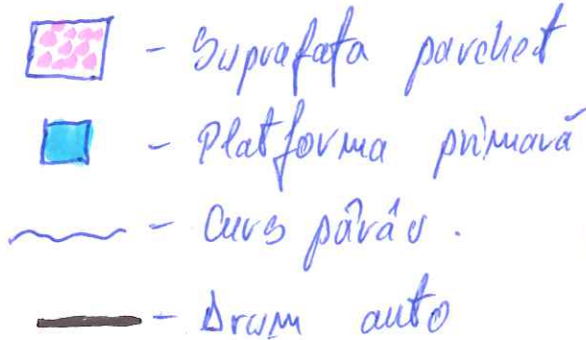 - Suprafata parchet
- Platforma primară
- Curs pârâu.
- Drum auto